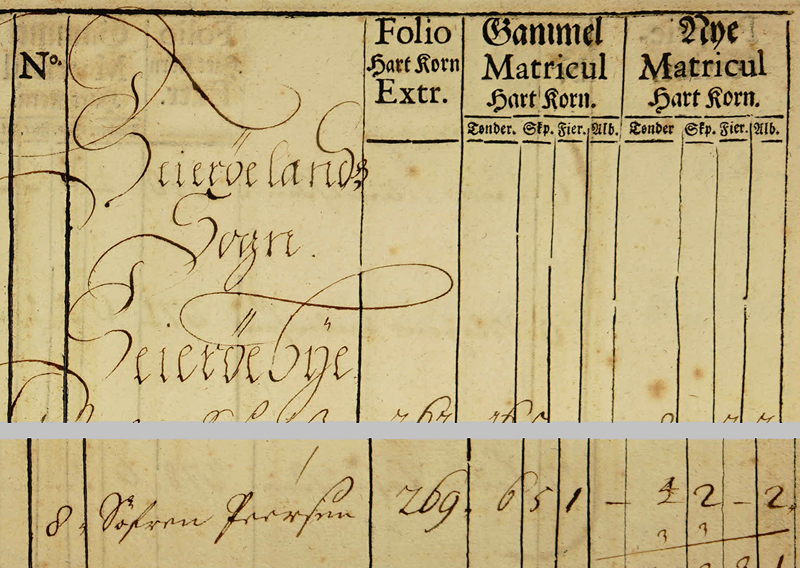 No.
Folio
Hart Korn
Extr.
Gammel
Matricul
Hart Korn.
Nye
Matricul
Hart Korn.
Tønder. Skp. Fier. Alb. Tønder Skp. Fier. Alb.
Seieröelands
Sogn.
Seieröe bÿe
8. Söfren Peersen 269. 6 5 1 – 4 2 – 2.
3 3